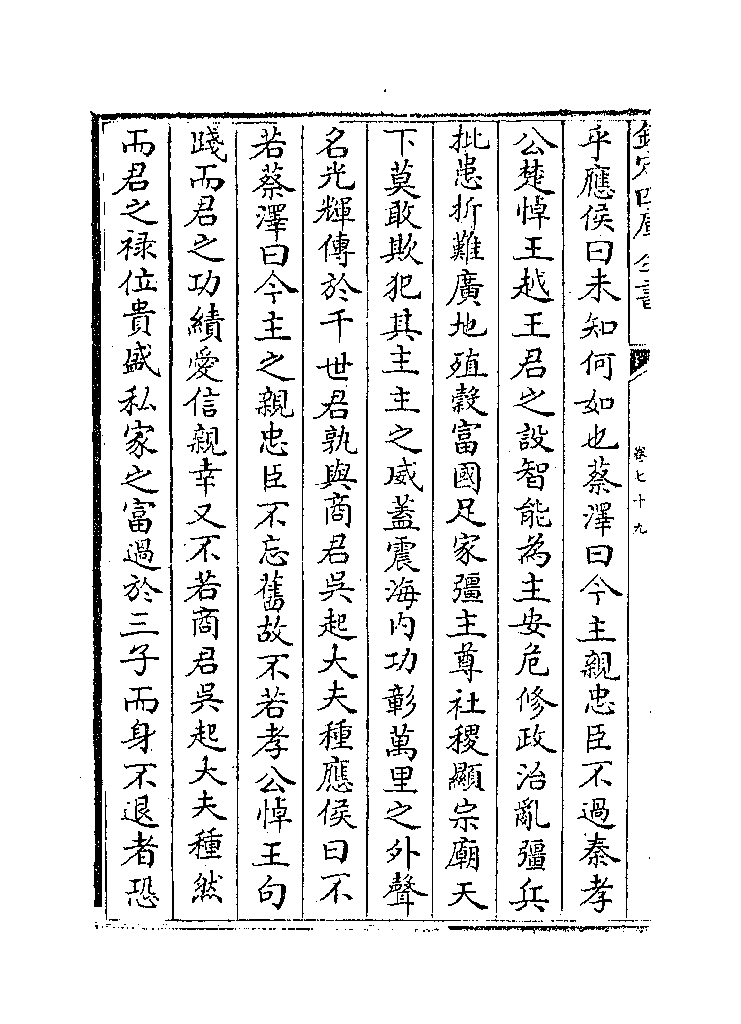 欽定四庫全書
卷七十九
乎應侯曰未知何如也蔡澤曰今主親忠臣不過秦孝
公楚悼王越王君之設智能為主安危修政治亂彊兵
批患折難廣地殖穀富國足家彊主尊社稷顯宗廟天
下莫敢欺犯其主主之威蓋震海内功彰萬里之外聲
名光輝傳於千世君孰與商君吳起大夫種應侯曰不
若蔡澤曰今主之親忠臣不忘舊故不若孝公悼王句
踐而君之功績愛信親幸又不若商君吳起大夫種然
而君之禄位貴盛私家之富過於三子而身不退者恐